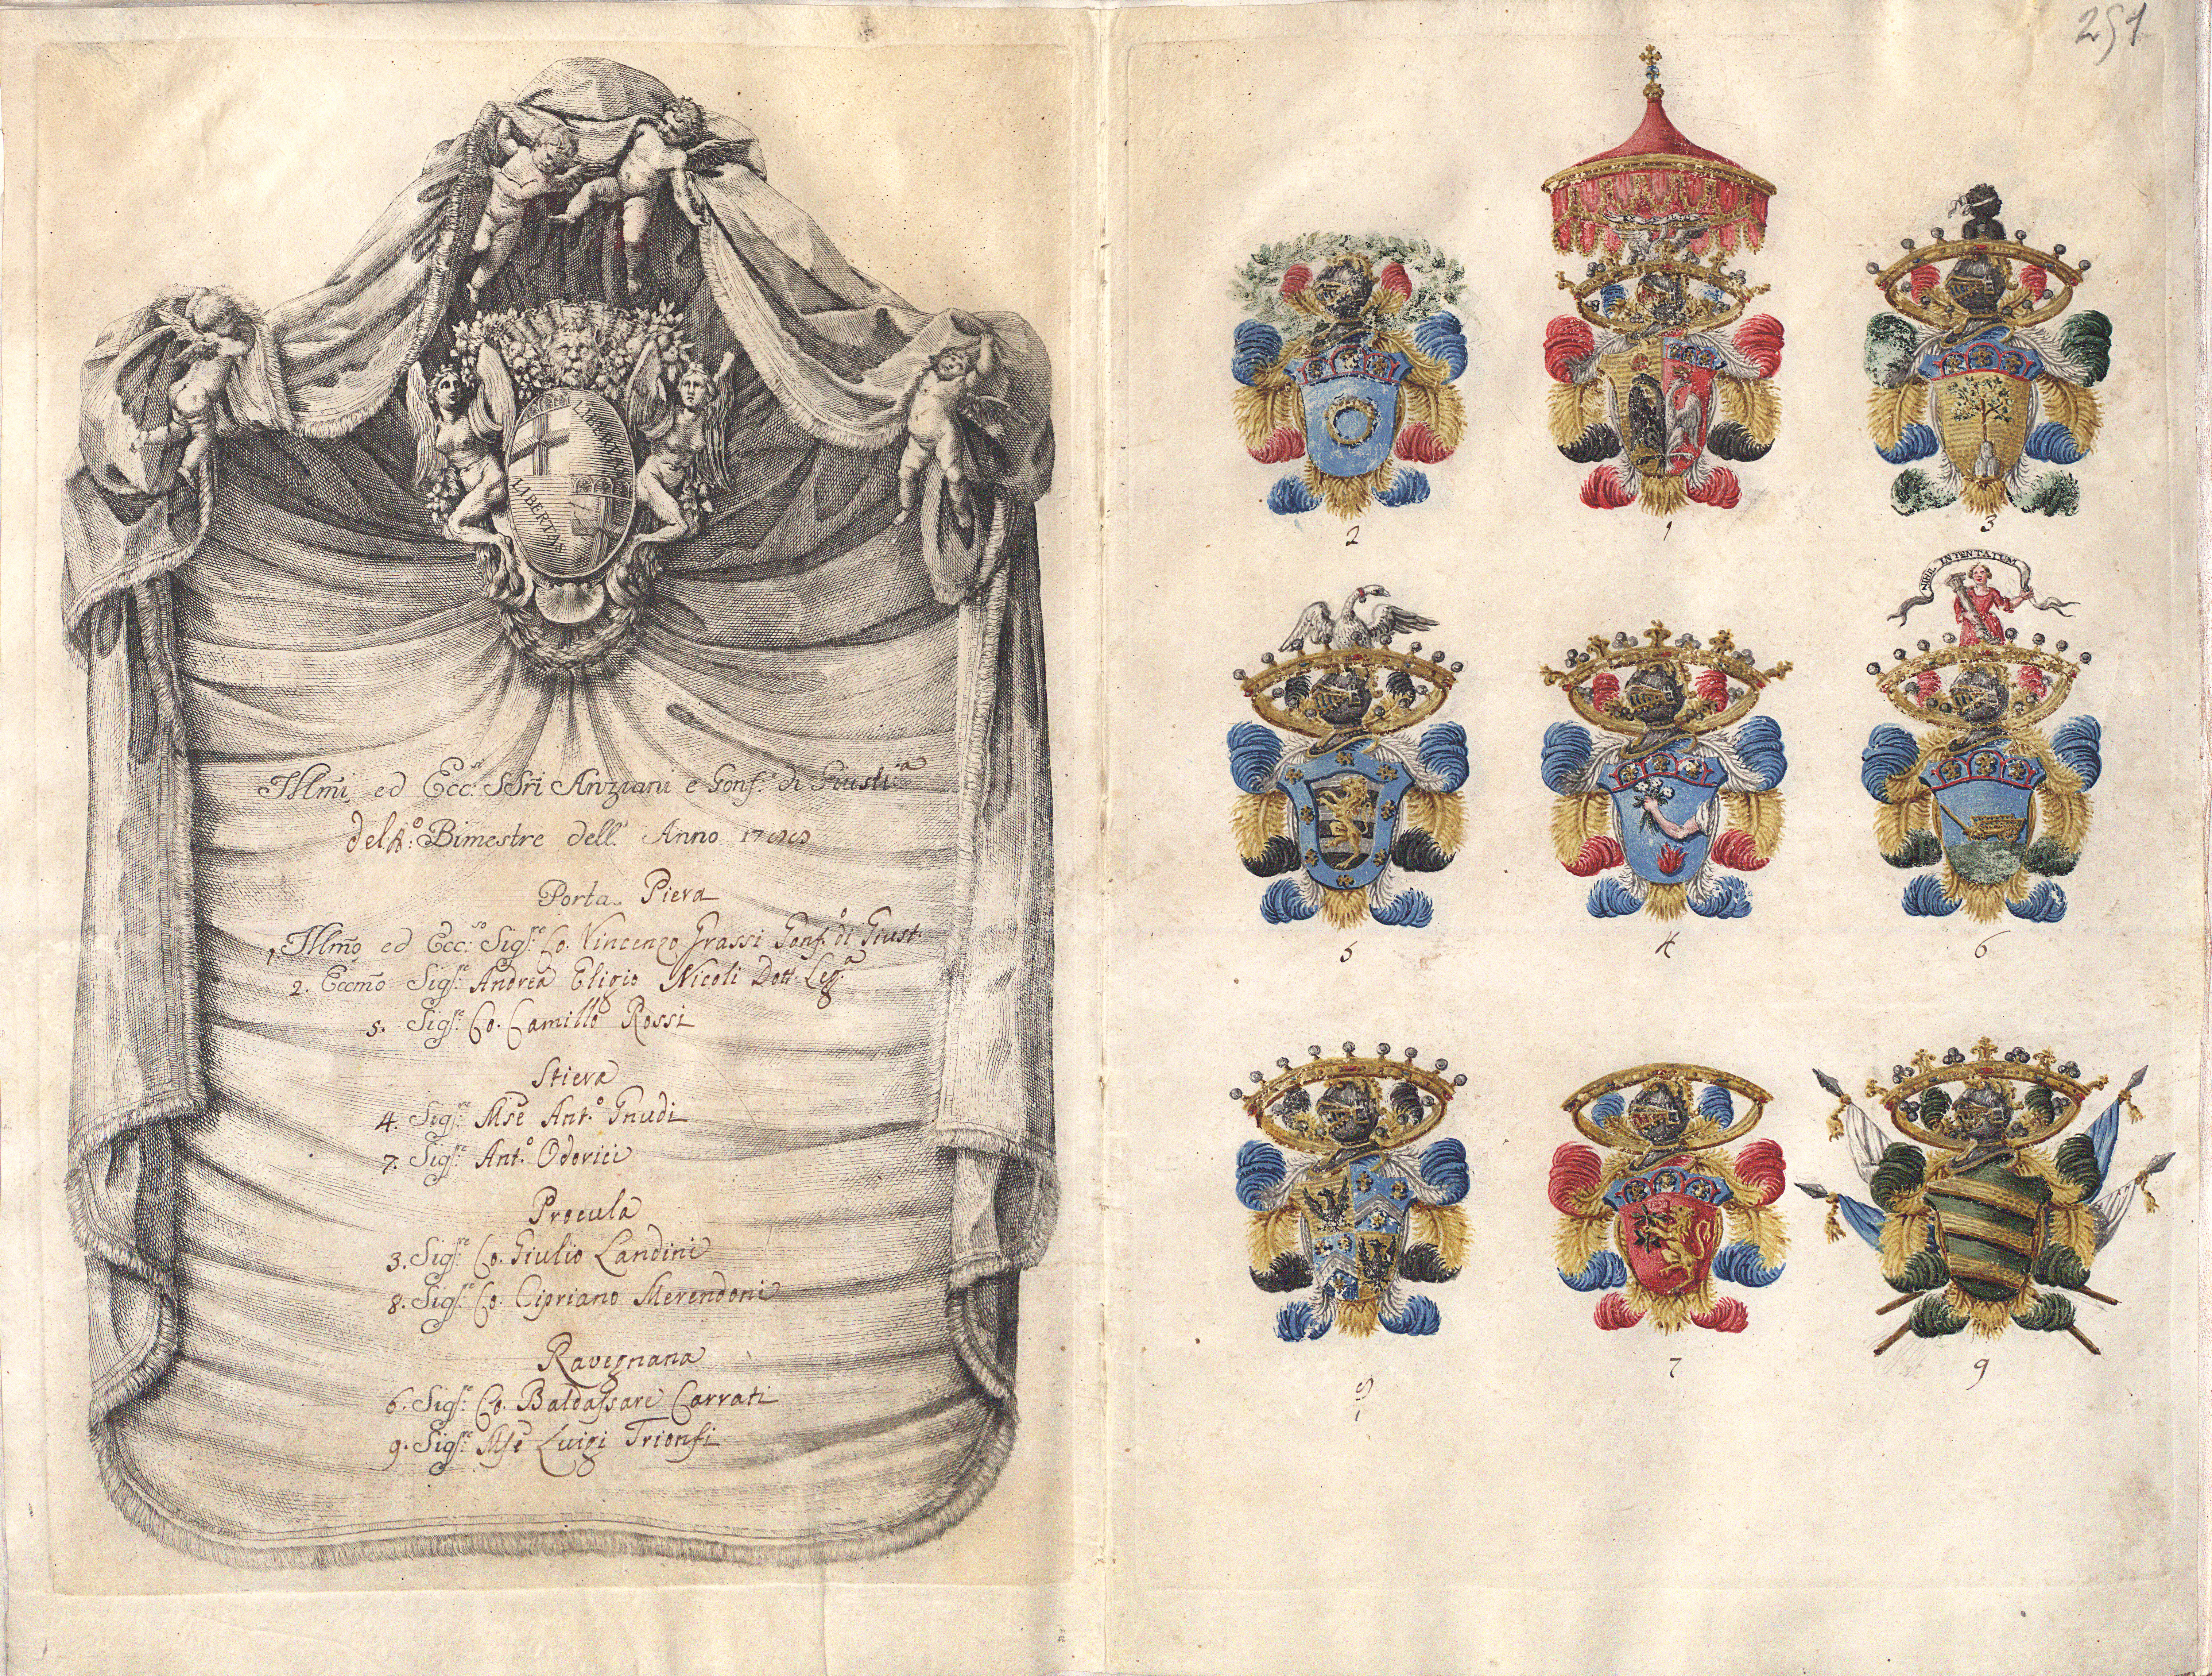 251
LIBERTAS
LIBERTAS
Illm̃i ed Ecc:si SSri Anziani e Gonf.e di Giusti:a
del 4:o Bimestre dell' Anno
Porta Piera
1. Illm̃o ed Ecc:so Sigr:e Co. Vincenzo Grassi Gonf.o di Giust.
2. Eccm̃o Sigr:e Andrea Eligio Nicoli Dott. Leg:a
5. Sigr:e Co. Camillo Rossi
Stiera
4. Sigr:e Mse Ant.o Gnudi
7. Sigr:e Ant.o Odorici
Procula
3. Sigr:e Co. Giulio Landini
8. Sigr:e Co. Cipriano Merendoni
Ravegnana
6. Sigr:e Co. Baldassare Carrati
9. Sigr:e Mse Luigi Trionfi
2
1
3
NIHIL INTENTATUM
5
4
6
7
9